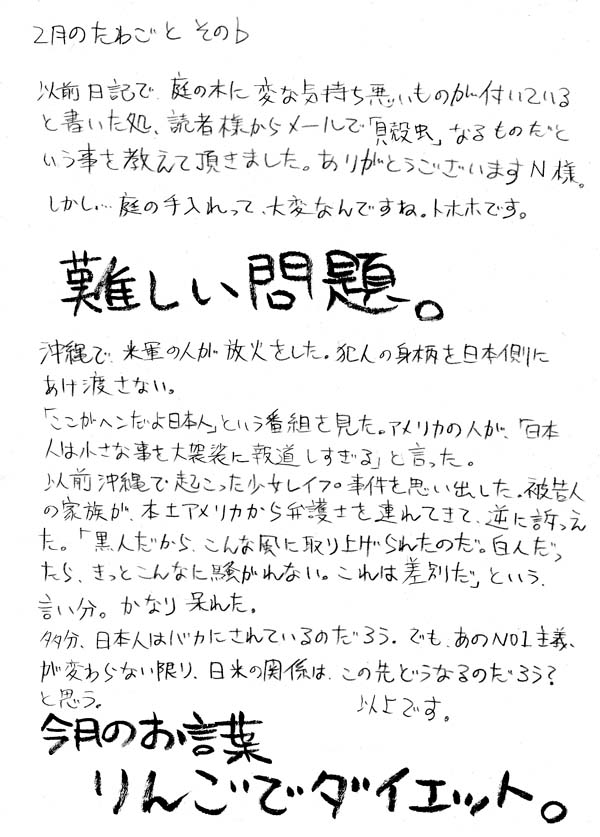 2月のたわごと その6
以前日記で、庭の木に変な気持ち悪いものが付いている
と書いた処、読者様からメールで「貝殻虫」なるものだと
いう事を教えて頂きました。ありがとうございますN様。
しかし…庭の手入れって、大変なんですね。トホホです。
難しい問題。
沖縄で、米軍の人が放火をした。犯人の身柄を日本側に
あけ渡さない。
「ここがヘンだよ日本人」という番組を見た。アメリカの人が、「日本
人は小さな事を大袈裟に報道しすぎる」と言った。
以前沖縄で起こった少女レイプ事件を思い出した。被告人
の家族が、本土アメリカから弁護士を連れてきて、逆に訴え
た。「黒人だから、こんな風に取り上げられたのだ。白人だっ
たら、きっとこんなに騒がれない。これは差別だ」という、
言い分。かなり呆れた。
多分、日本人はバカにされているのだろう。でも、あのNO1主義、
が変わらない限り、日米の関係は、この先どうなるのだろう?
と思う。 以上です。
今月のお言葉
りんごでダイエット。